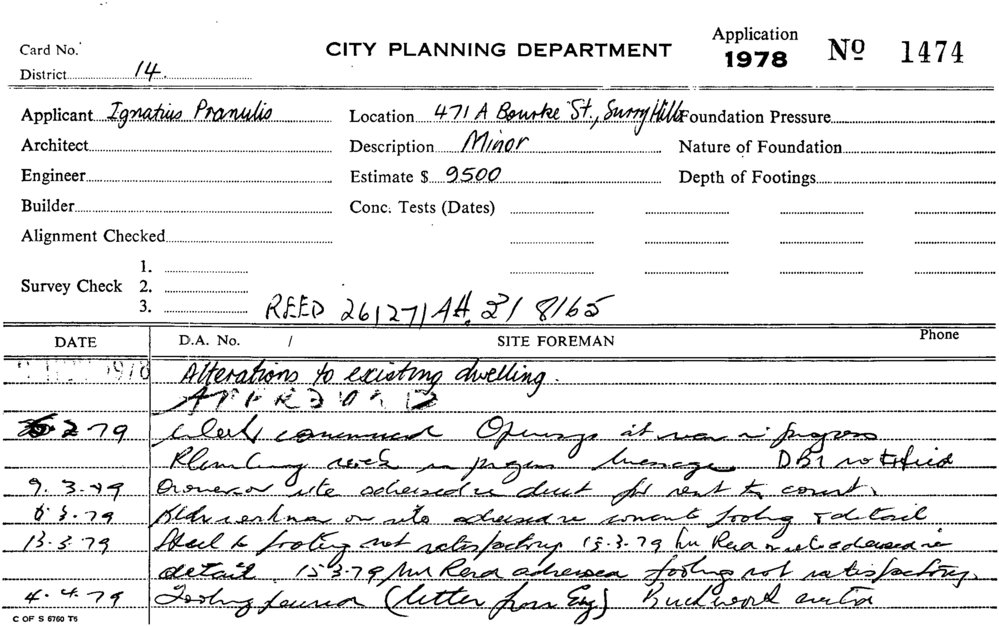 Card No.
CITY PLANNING DEPARTMENT
Application
1978
No 1474
District 14
Applicant Ignatius Pranulis
Location 471 A Bourke St., Surry Hills
Foundation Pressure
Architect
Description Minor
Nature of Foundation
Engineer
Estimate $ 9500
Depth of Footings
Builder
Conc. Tests (Dates)
Alignment Checked
1.
Survey Check 2.
3.
REED 26/27/AH, 21 8165
DATE D.A. No. / SITE FOREMAN Phone
1978 Alterations to existing dwelling.
APPROVED
2 79 Work commenced Openings at rear in progress
Plumbing work in progress DBI notified
9. 3. 79 Owner on site advised re duct for vent to court.
3. 79 on site advised re concrete footing & detail
13. 3. 79 Steel to footing not satisfactory 15.3.79 Mr on site advised re
detail. 15.3.79 Mr advised footing not satisfactory.
4. 4. 79 Footing poured (letter from Eng) Brickwork
C OF S 6760 T5